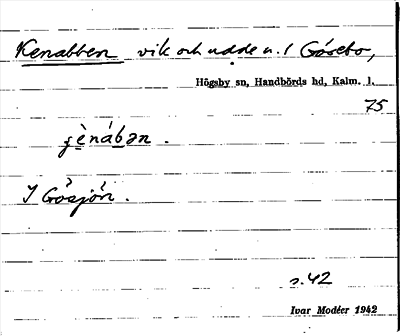 Kenabben vik och udde u. / Gåsebo,
Högsby sn, Handbörds hd, Kalm. l.
75
I Gåsjön.
s. 42
Ivar Modéer 1942